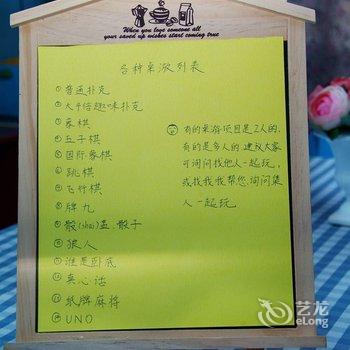 When you love someone all
your saved up wishes start coming true
各种桌游列表
①普通扑克
②太平怪趣味扑克
③象棋
④五子棋
⑤国际象棋
⑥跳棋
⑦飞行棋
⑧牌九
⑨骰(shai)盅、骰子
⑩狼人
⑪谁是卧底
⑫真心话
⑬纸牌麻将
⑭UNO
有的桌游项目是2人的,
有的是多人的,建议大家
可询问找他人一起玩,
或找我我帮您询问集
人一起玩
艺龙
eLong.